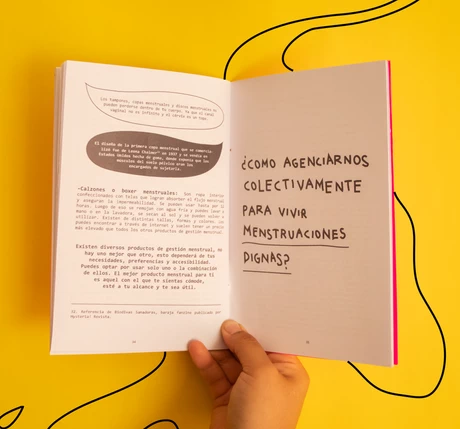 Los tampones, copas menstruales y discos menstruales no
pueden perderse dentro de tu cuerpo, ya que el canal
vaginal no es infinito y el cérvix es un tope.
El diseño de la primera copa menstrual que se comercia-
lizó fue de Leona Chalmers en 1937 y se vendía en
Estados Unidos hecha de goma, donde suponía que los
músculos del suelo pélvico eran los
encargados de sujetarla.
-Calzones o boxer menstruales: Son ropa interior
confeccionados con telas que logran absorber el flujo menstrual
y aseguran la impermeabilidad. Se pueden usar hasta por
horas. Luego de eso se remojan con agua fría y puedes lavar a
mano o en la lavadora, se secan al sol y se pueden volver a
utilizar. Existen de distintas tallas, formas y colores. Los
puedes encontrar a través de internet y suelen tener un precio
más elevado que todos los otros productos de gestión menstrual.
Existen diversos productos de gestión menstrual, no
hay uno mejor que otro, esto dependerá de tus
necesidades, preferencias y accesibilidad.
Puedes optar por usar solo uno o la combinación
de ellos. El mejor producto menstrual para ti
es aquel con el que te sientas cómode,
esté a tu alcance y te sea útil.
¿COMO AGENCIARNOS
COLECTIVAMENTE
PARA VIVIR
MENSTRUACIONES
DIGNAS?